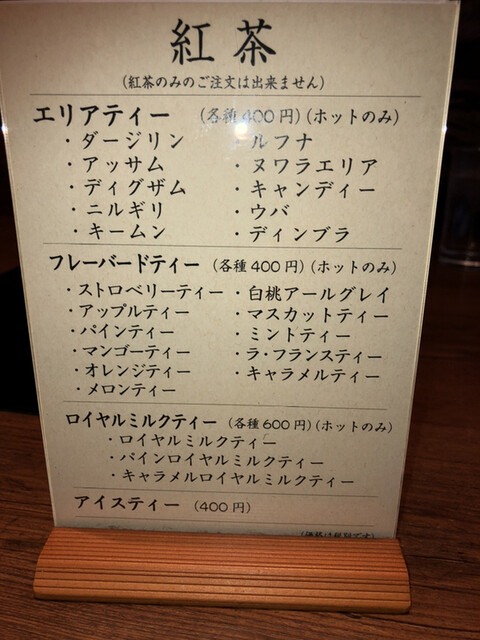 紅茶
(紅茶のみのご注文は出来ません)
エリアティー (各種400円)(ホットのみ)
・ダージリン ・ルフナ
・アッサム ・ヌワラエリア
・ディグザム ・キャンディー
・ニルギリ ・ウバ
・キームン ・ディンブラ
フレーバードティー (各種400円)(ホットのみ)
・ストロベリーティー ・白桃アールグレイ
・アップルティー ・マスカットティー
・パインティー ・ミントティー
・マンゴーティー ・ラ・フランスティー
・オレンジティー ・キャラメルティー
・メロンティー
ロイヤルミルクティー (各種600円)(ホットのみ)
・ロイヤルミルクティー
・パインロイヤルミルクティー
・キャラメルロイヤルミルクティー
アイスティー (400円)
(価格は税別です)